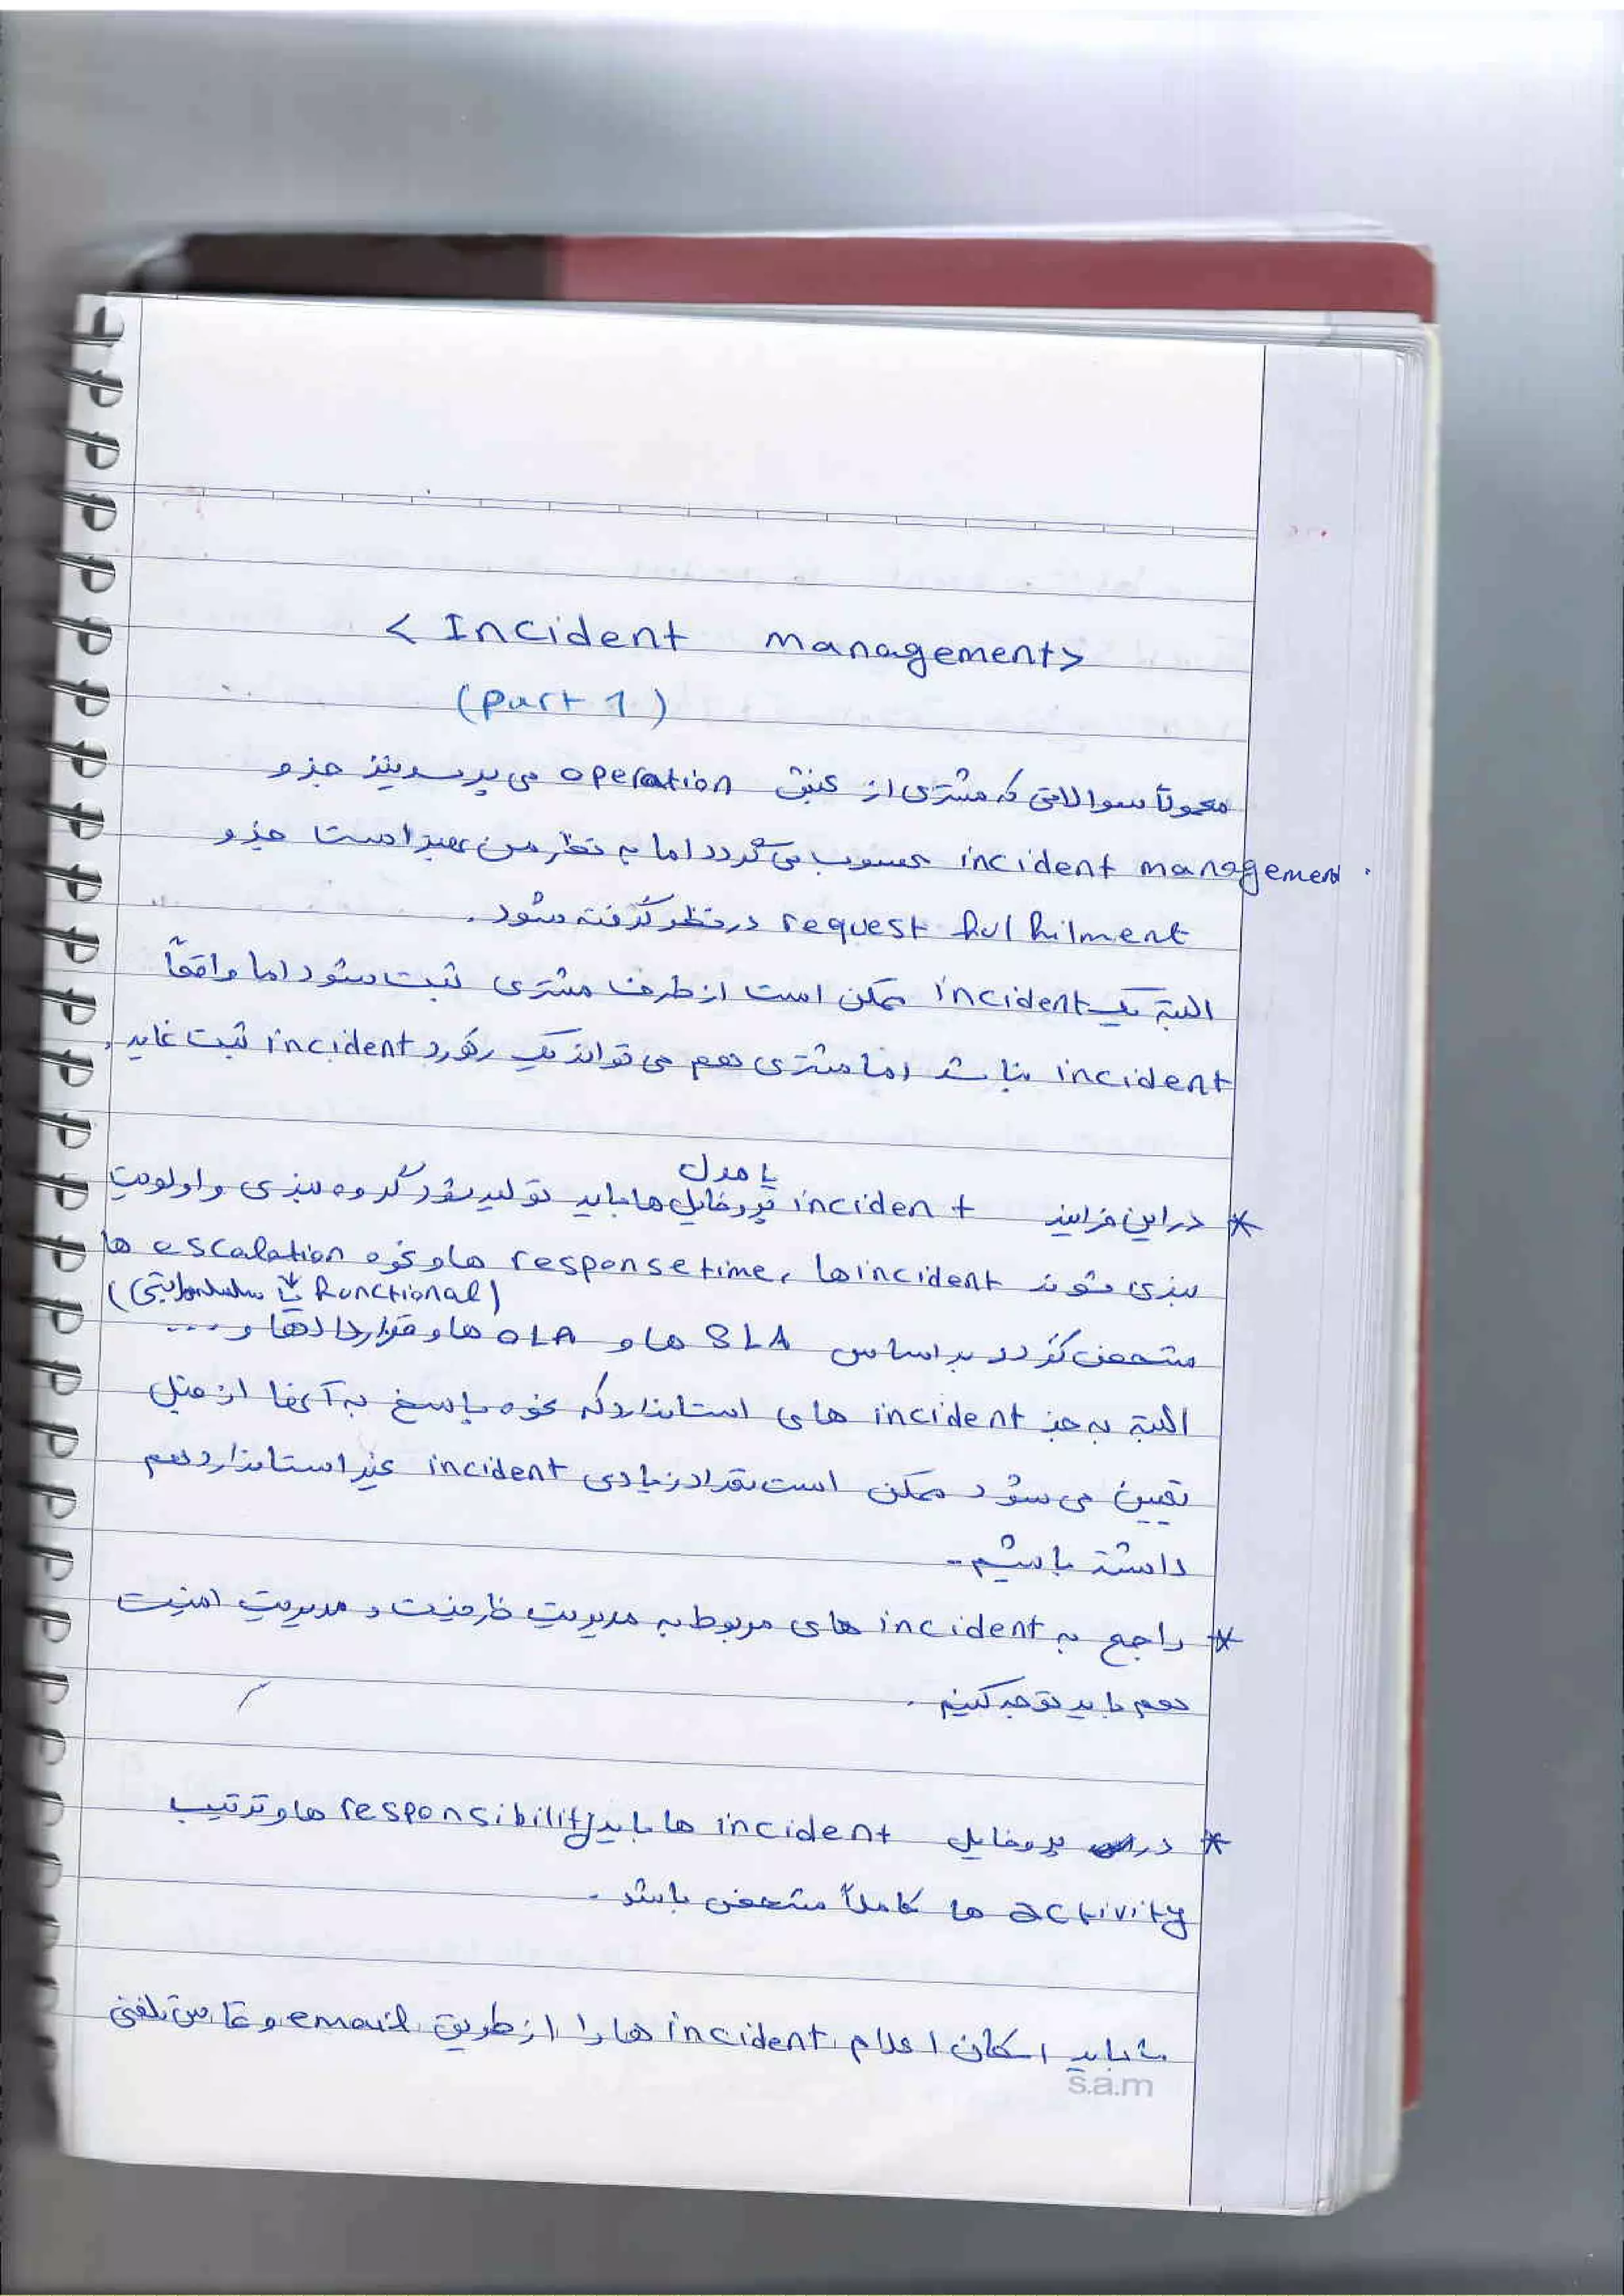 < Incident management>
(part 1)
معمولاً سوالاتی که مشتری از عنبق operation می پرسد نیز جزو
incident management محسوب می گردد اما به نظر من بهتر است جزو
request fulfilment در نظر گرفته شود.
البته یک incident ممکن است از طرف مشتری ثبت شود اما واقعاً
incident نباشد اما مشتری هم می تواند یک رکورد incident ثبت نماید.
یا مدل
* در این فرایند incident پروفایل ها باید تولید شود گروه بندی و اولویت
بندی شوند incident ها، response time ها و نحوه escalation ها
(functional یا سلسله مراتبی)
مشخص گردد بر اساس SLA ها و OLA ها و قراردادها و ...
البته به جز incident های استاندارد که نحوه پاسخ به آنها از قبل
تعیین می شود ممکن است تعداد زیادی incident غیر استاندارد هم
داشته باشیم.
* راجع به incident های مربوط به مدیریت ظرفیت و مدیریت امنیت
هم باید توجه کنیم.
* در پروفایل incident ها باید responsibility ها و ترتیب
activity ها کاملاً مشخص باشد.
باید امکان اعلام incident ها را از طریق email و تماس تلفنی
s.a.m